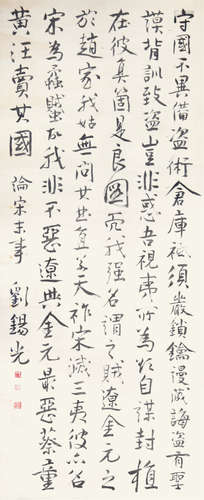 守國不異備盜術倉庫祗須嚴鎖鑰謾藏誨盜有聖
謨背訓致盜豈非惑吾視夷所為頗自謀封植
在彼真箇是良圖而我強名謂之賊遼金元之
於趙家我姑無問其曲直天祚宋滅三夷彼亦名
宋為蟊賊我非不惡遼與金元最惡蔡童
黃汪賣其國 論宋末事 劉錫光